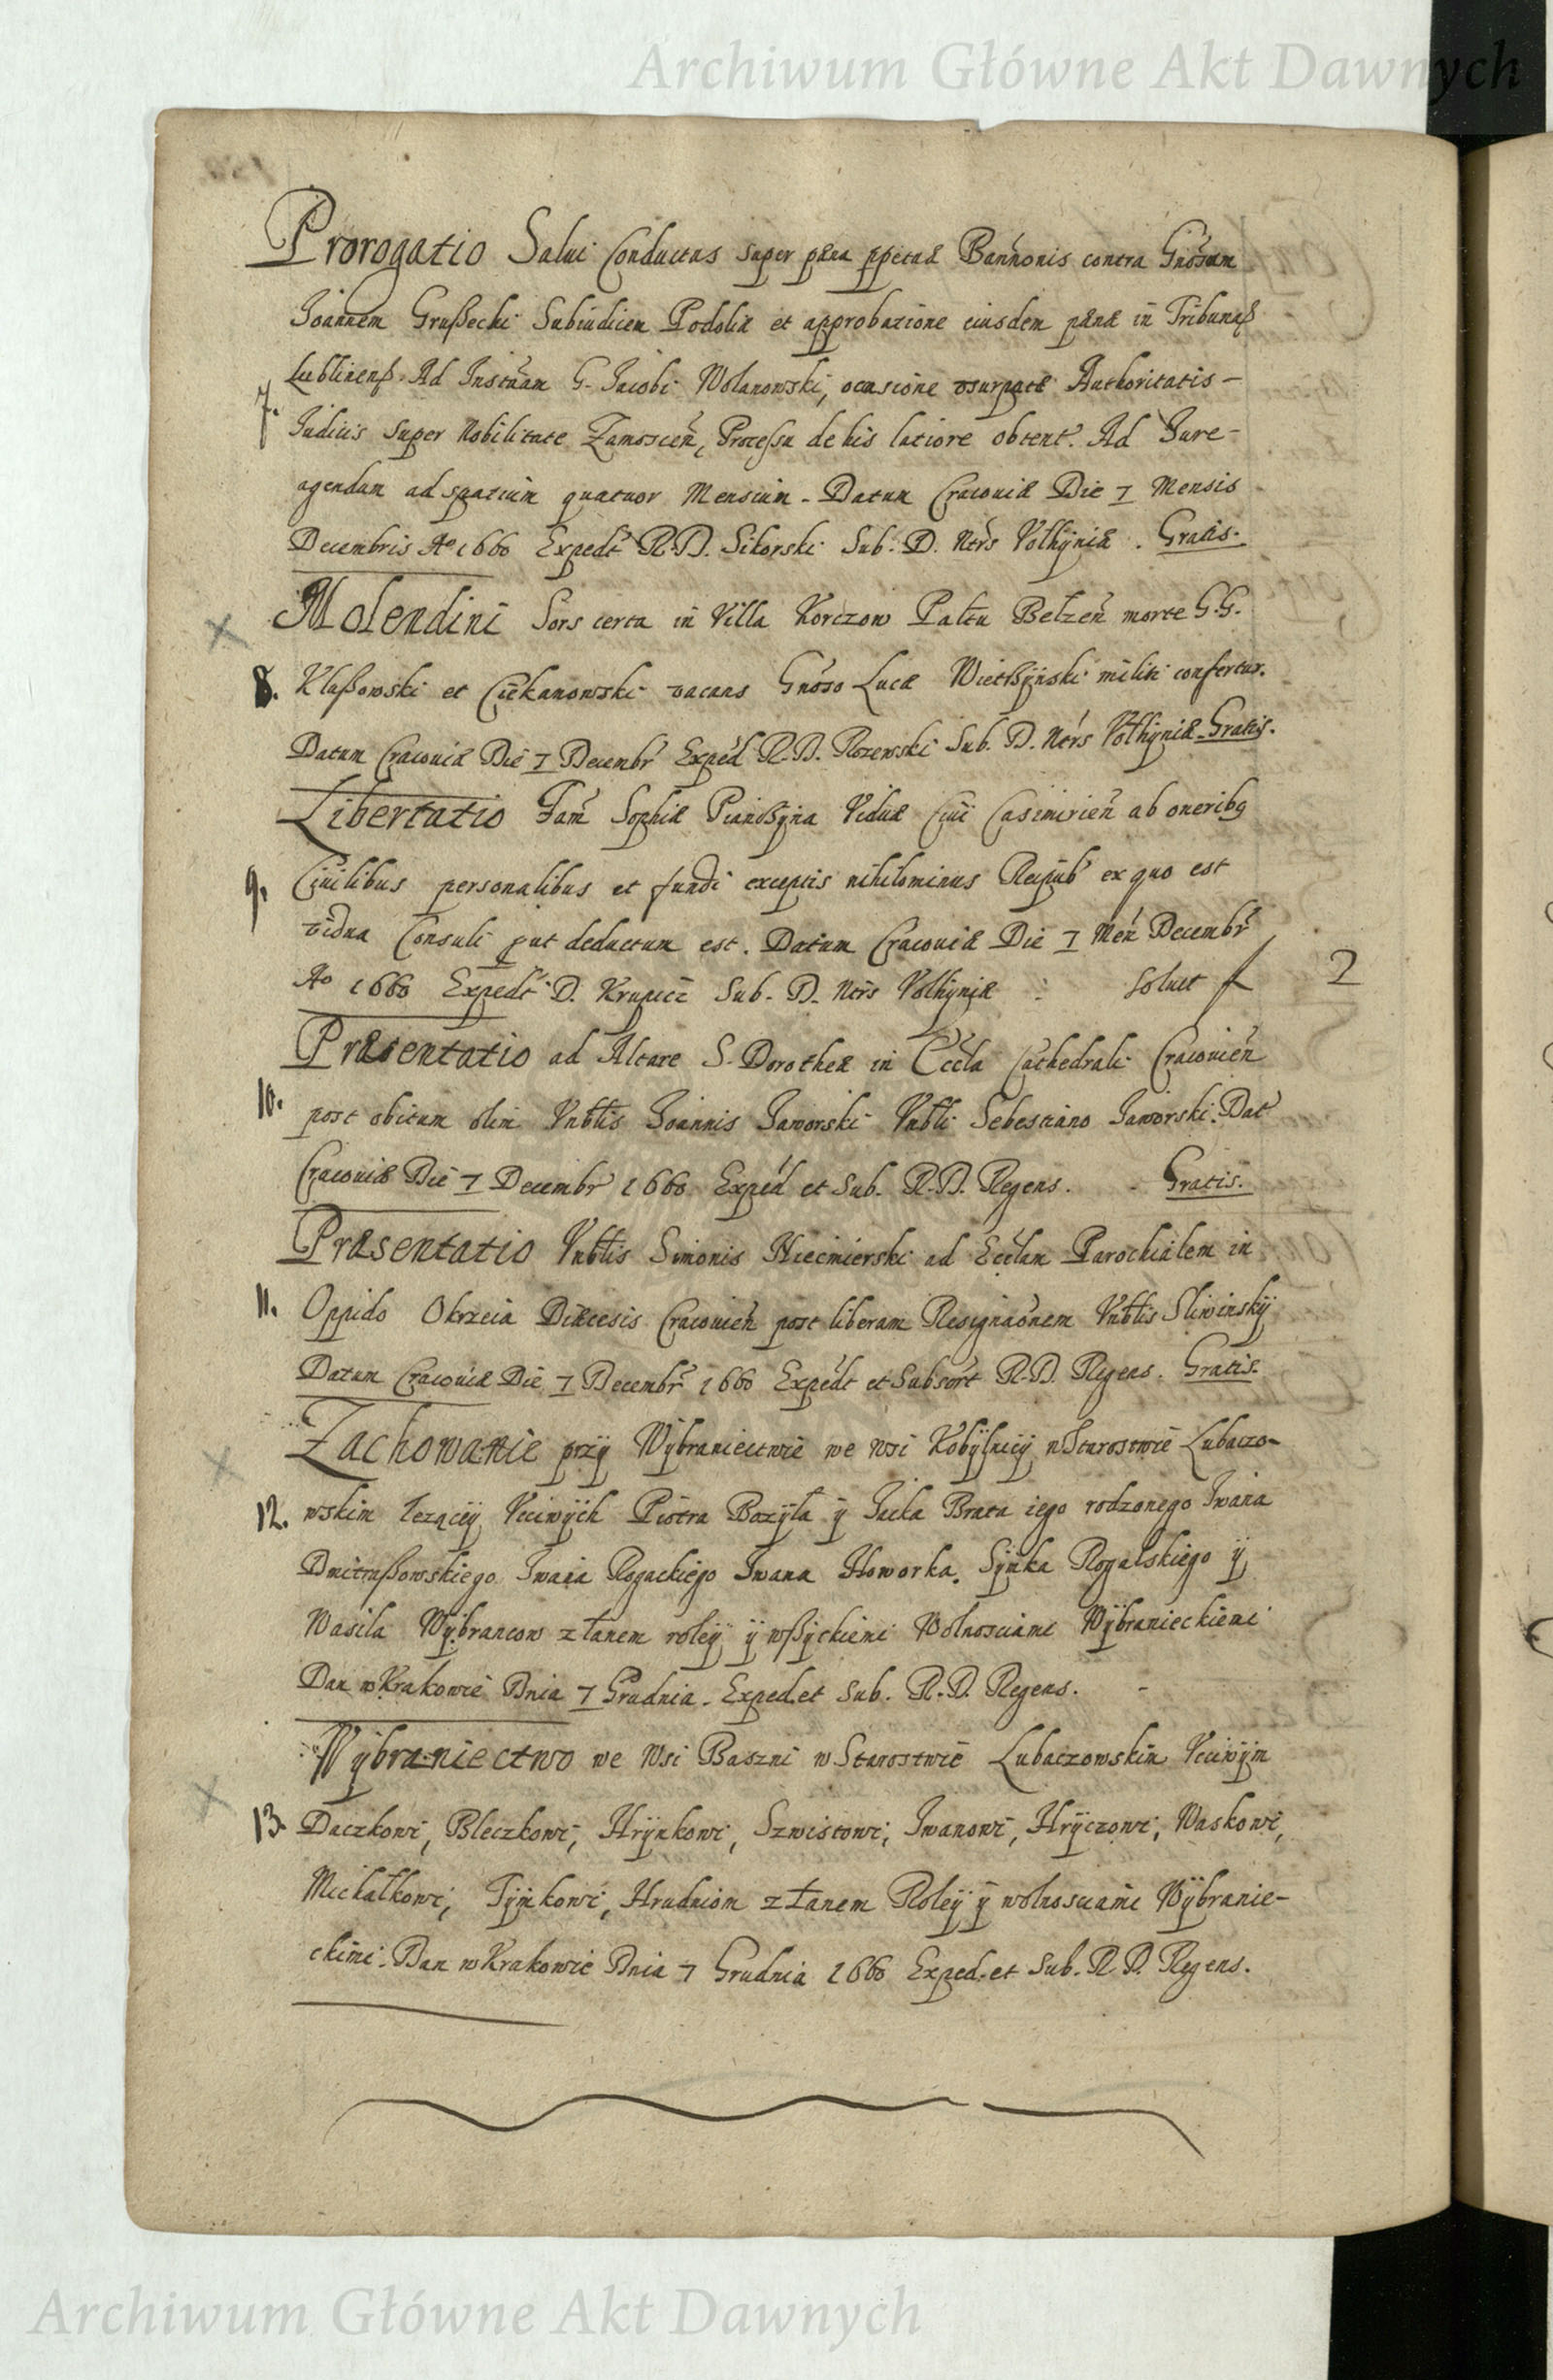 Archiwum Główne Akt Dawnych
Prorogatio Salui Conductus super pæna ppetuæ Bannonis contra Gnosum
Joannem Grußecki Subiudicem Podoliæ et approbatione eiusdem pænæ in Tribunaß
Lublinenß Ad Instãm G. Jacobi Wolanowski, ocasione vsurpatæ Authoritatis –
7. Judicis super Nobilitate Zamosceñ, Processu de his latiore obtent. Ad Jure-
agendum ad spatium quatuor Mensium – Datum Cracouiæ Die 7 Mensis
Decembris Aº 1660 Expedt R.D. Sikorski Sub. D. Ntrs Volhyniæ. Gratis.
Molendini Sors certa in Villa Korczow Paltu Belzeñ morte G.G.
8. Klaßowski et Ciekanowski vacans Gnoso Lucæ Wietßynski militi confertur.
Datum Cracouiæ Die 7 Decembr Exped R.D. Rozewski Sub. D. Ntrs Volhyniæ Gratis.
Libertatio Fam Sophiæ Pianßyna Viduæ Ciui Casimirieñ ab oneribq
9. Ciuilibus personalibus et fundi exceptis nihilominus Reipub ex quo est
vidua Consuli put deductum est. Datum Cracouiæ Die 7 Men Decembr
Aº 1660 Expedt D. Krupecz Sub. D. Ntrs Volhyniæ : Soluit f 2
Præsentatio ad Altare S. Dorotheæ in Eccla Cathedrali Cracouieñ
10. post obitum olim Vnblis Joannis Jaworski Vnbli Sebestiano Jaworski. Dat
Cracouiæ Die 7 Decembr 1660 Exped et Sub. R.D. Regens. – Gratis.
Præsentatio Vnblis Simonis Niecmierski ad Ecclam Parochialem in
11. Oppido Okrzeia Diæcesis Cracouieñ post liberam Resignaõnem Vnblis Sliwinskÿ
Datum Cracouiæ Die 7 Decembr 1660 Expedt et Subscrt R.D. Regens. Gratis.
Zachowanie przÿ Wÿbraniectwie we wsi Kobÿlnicÿ w Starostwie Lubaczo-
12. wskim leząceÿ Vcciwÿch Piotra Bozÿła ÿ Jacka Brata iego rodzonego Iwana
Dmitraßowskiego Iwana Rogackiego Iwana Howorka, Sÿnka Rogalskiego ÿ
Wasila Wÿbrancow z łanem roleÿ ÿ wßÿckiemi Wolnosciami Wÿbranieckiemi
Dan w Krakowie Dnia 7 Grudnia. Exped. et Sub. R.D. Regens. –
Wÿbraniectwo we Wsi Baszni w Starostwie Lubaczowskim Vcciwÿm
13. Daczkowi, Bleczkowi, Hrÿnkowi, Szwistowi, Iwanowi, Hrÿczowi, Waskowi,
Michałkowi, Tÿmkowi, Hrudniom z łanem Roleÿ ÿ wolnosciami Wÿbranie-
ckimi. Dan w Krakowie Dnia 7 Grudnia 1660 Exped. et Sub. R.D. Regens.
Archiwum Główne Akt Dawnych